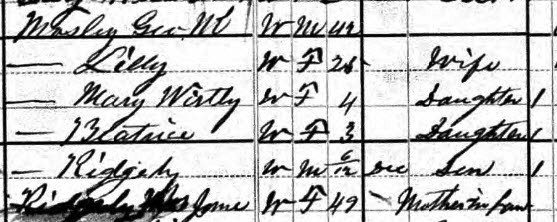 Mosley Geo M W M 42
— Lilly W F 28 Wife
— Mary Wirtly W F 4 Daughter 1
— Beatrice W F 3 Daughter 1
— Ridgely W M 6/12 Dec Son 1
Jane W F 49 Mother in Law